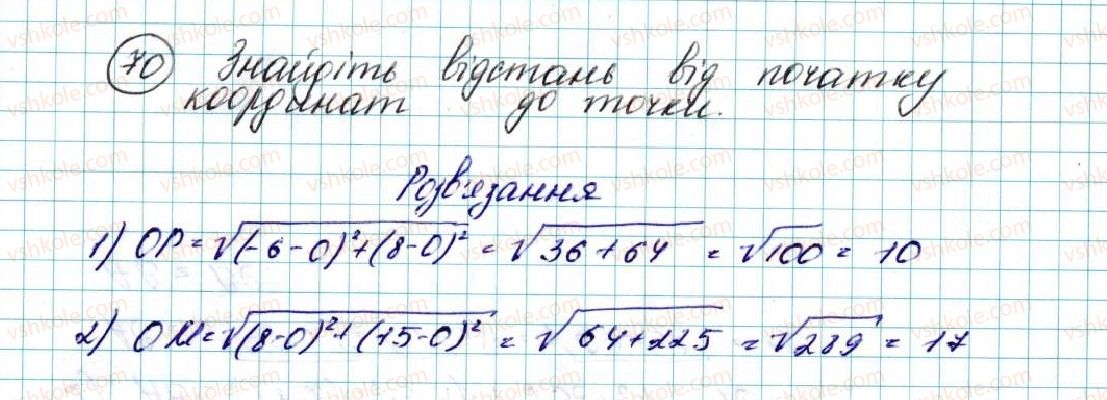 70 Знайдіть відстань від початку
координат до точки.
Розв'язання
1) OP = √((-6-0)²+(8-0)²) = √(36+64) = √100 = 10
2) OM = √((8-0)²+(15-0)²) = √(64+225) = √289 = 17